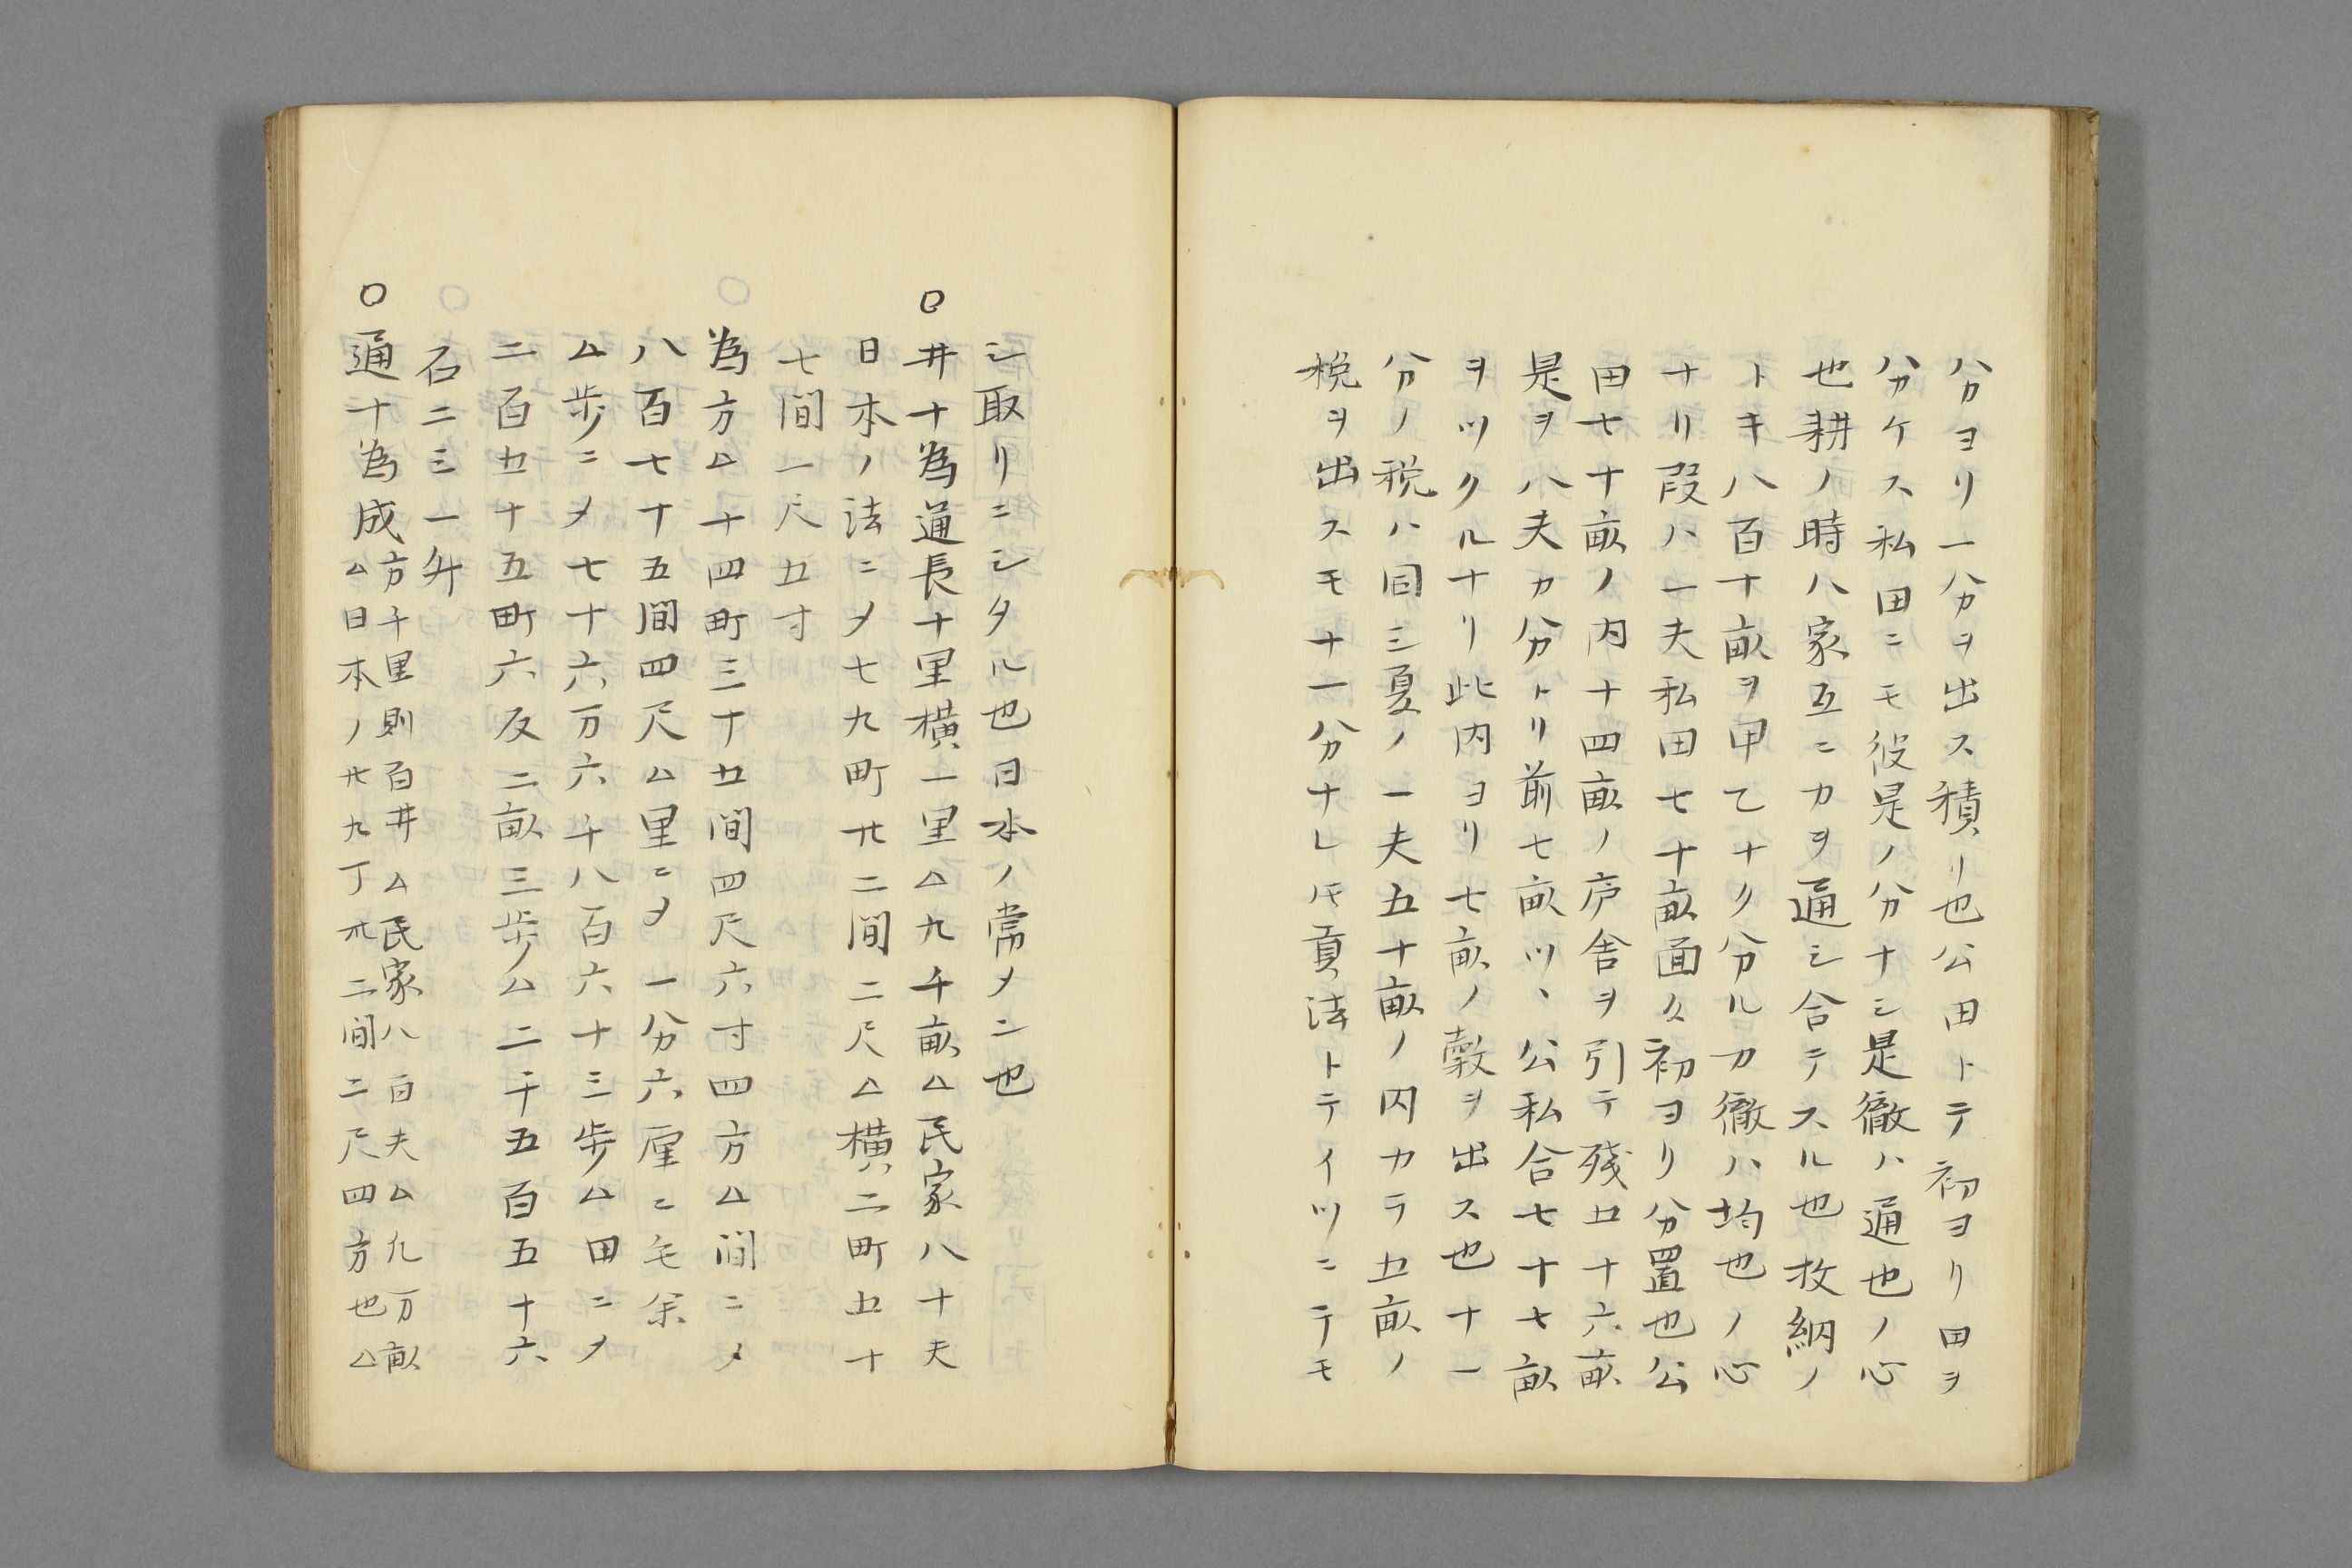 八分ヨリ一八分ヲ出ス積リ也公田トテ初ヨリ田ヲ
分ケス私田ニモ役是ノ分ナシ是徹ハ通也ノ心
也耕ノ時八家互ニカヲ通シ合テスル也收納ノ
トキ八百十畝ヲ甲乙ナク分ルカ徹ハ均也ノ心
ナリ段ハ一夫私田七十畝面々初ヨリ分置也公
田七十畝ノ内十四畝ノ庐舎ヲ引テ残五十六畝
是ヲ八夫カ分トリ前七畝ツヽ公私合七十七畝
ヲツクルナリ此内ヨリ七畝ノ穀ヲ出ス也十一
分ノ税ハ同シ夏ノ一夫五十畝ノ内カラ五畝ノ
税ヲ出スモ十一分ナレ𪜈貢法トテイツニテモ
シ取リニシタル也日本ノ常メニ也
○井十為通長十里横一里△九千畝△民家八十夫
日本ノ法ニメ七九町卄二間二尺△横二町五十
七間一尺五寸
為方△三十四町三十五間四尺六寸四方△間ニメ
八百七十五間四尺△里ニメ一分六厘二毛余
△歩ニメ七十六万六千八百六十三歩△田ニメ
二百五十五町六反二畝三歩△二千五百五十六
石二三一升
○通十為成方千里則百井△民家八百夫△九万畝
△日本ノ卄九丁卅二間二尺四方也△